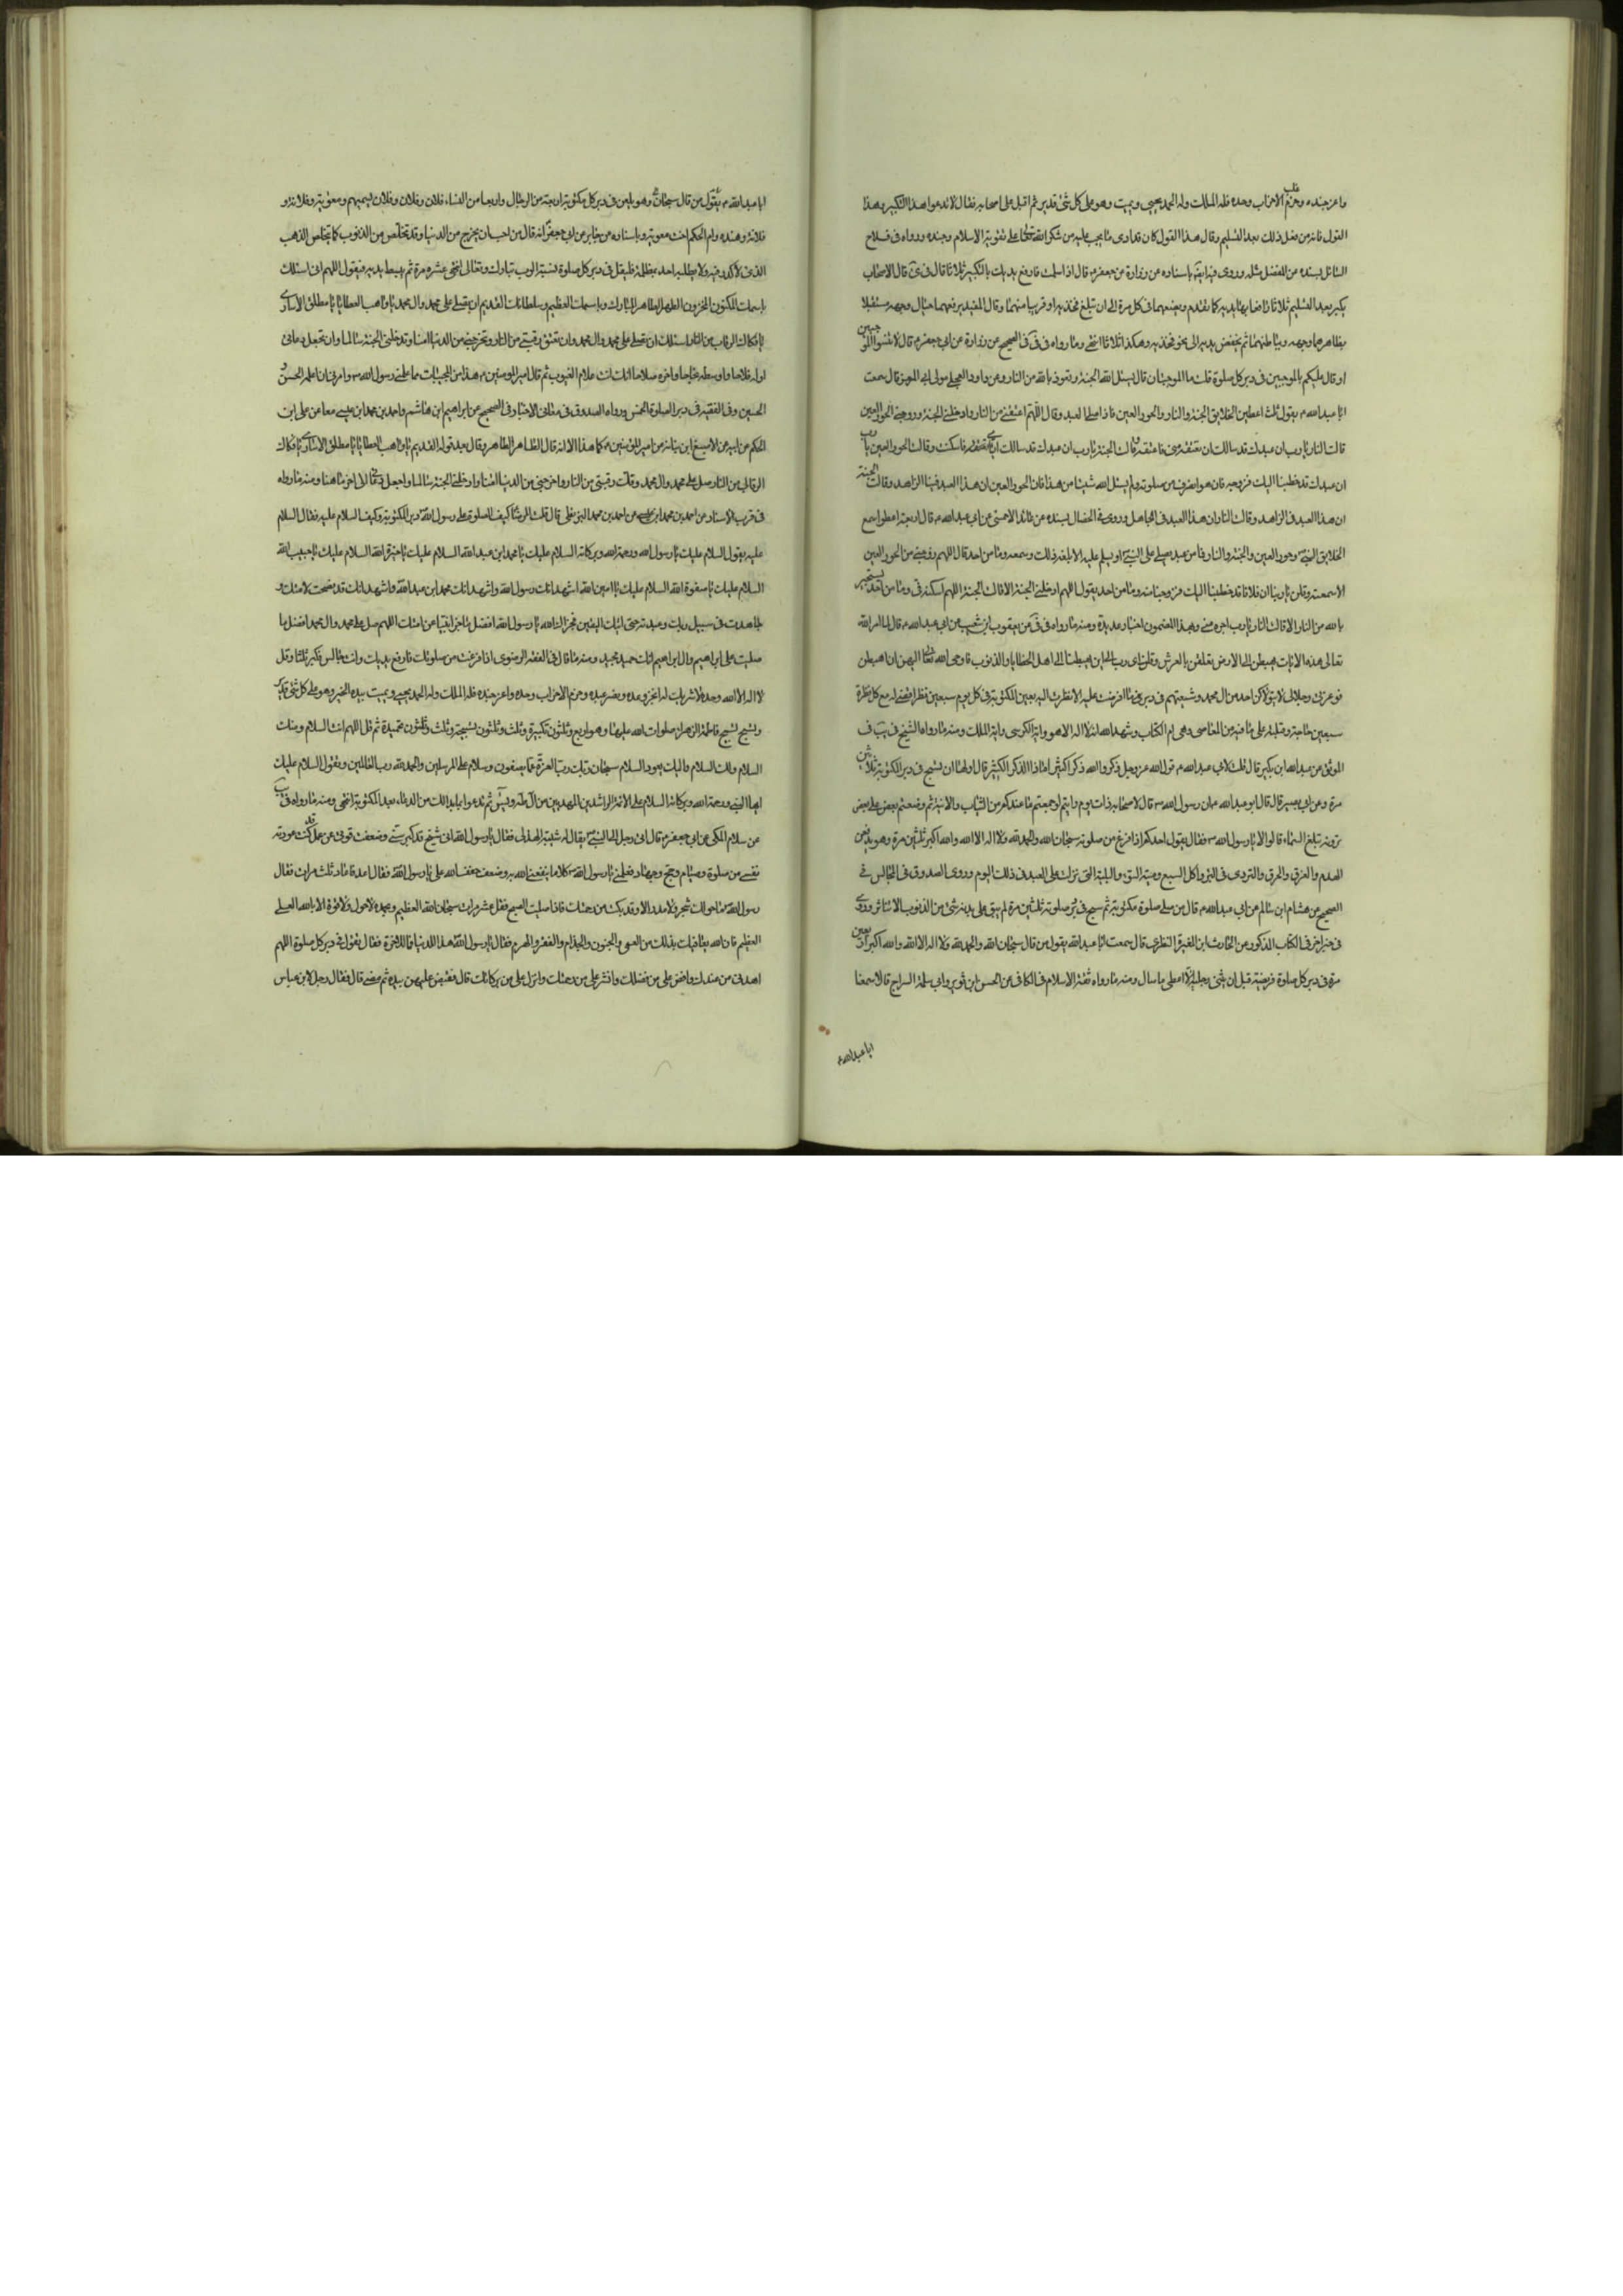 واعز جنده وغلب الاحزاب وحده فله الملك وله الحمد يحيى ويميت وهو على كل شئ قدير ثم اقبل على اصحابه فقال لا تدعوا هذا التكبير وهذا
القول فانه من فعل ذلك بعد التسليم وقال هذا القول كان قد ادى ما يجب عليه من شكر الله تعالى على تقوية الاسلام وجنده ورواه في فلاح
السائل بسنده عن المفضل مثله وروى فيه ايضا باسناده عن زرارة عن جعفر ع قال اذا سلمت فارفع يديك بالتكبير ثلاثا قال في قال الاصحاب
يكبر بعد التسليم ثلاثا رافعا بها يديه كما تقدم ويضعهما في كل مرة الى ان تبلغ فخذيه او قريبا منهما وقال المفيد يرفعهما حيال وجهه مستقبلا
بظاهرهما وجهه وبباطنهما ثم يخفض يديه الى نحو فخذيه وهكذا ثلاثا انتهى وما رواه في في الصحيح عن زرارة عن ابى جعفر ع قال لا تنسوا الموجبتين
او قال عليكم بالموجبتين في دبر كل صلوة قلت ما الموجبتان قال يسئل الله الجنة وتعوذ بالله من النار وعن داود العجلى مولى ابى المعزا قال سمعت
ابا عبدالله ع يقول ثلث اعطين الخلايق الجنة والنار والحور العين فاذا صلى العبد وقال اللهم اعتقنى من النار وادخلنى الجنة وزوجنى الحور العين
قالت النار يا رب ان عبدك قد سالك ان تعتقه منى فاعتقه وقالت الجنة يا رب ان عبدك قد سالك اياى فاسكنه وقالت الحور العين يا رب
ان عبدك قد خطبنا اليك فزوجه فان هو انصرف من صلوته ولم يسئل الله شيئا من هذا قلن الحور العين ان هذا العبد فينا الزاهد وقالت الجنة
ان هذا العبد في الزاهد وقالت النار ان هذا العبد في لجاهل وروى في الخصال بسنده عن عائذ الاحمسى عن ابى عبدالله ع قال اربعة اعطوا سمع
الخلايق النبى ص وحور العين والجنة والنار فما من عبد يصلى على النبى ص او يسلم عليه الا بلغه ذلك وسمعه وما من احد قال اللهم زوجنى من الحور العين
الا سمعنه وقلن يا ربنا ان فلانا قد خطبنا اليك فزوجنا منه وما من احد يقول اللهم ادخلنى الجنة الا قالت الجنة اللهم اسكنه فى وما من احد يستجير
بالله من النار الا قالت النار يا رب اجره منى وبهذا المضمون اخبار عديدة ومنه ما رواه في في عن يعقوب ابن شعيب عن ابى عبدالله ع قال لما امر الله
تعالى هذه الايات يهبطن الى الارض تعلقن بالعرش وقلن اى رب الى اين تهبطنا الى اهل الخطايا والذنوب فاوحى الله تعالى اليهن ان اهبطن
فوعزتى وجلالى لا يتلوكن احد من آل محمد وشيعتهم في دبر ما افترضت عليه الا نظرت اليه بعينى المكنونة في كل يوم سبعين نظرة اقضى له مع كل نظرة
سبعين حاجة وقبلته على ما فيه من المعاصى وهى ام الكتاب وشهد الله انه لا اله الا هو واية الكرسى واية الملك ومنه ما رواه الشيخ في يب في
الموثق عن عبدالله ابن بكير قال قلت لابى عبدالله ع قول الله عز وجل اذكروا الله ذكرا كثيرا ماذا الذكر الكثير قال ان تسبح في دبر المكتوبة ثلاثين
مرة وعن ابى بصير قال قال ابو عبدالله ع ان رسول الله ص قال لاصحابه ذات يوم ارايتم لو جمعتم ما عندكم من الثياب والانية ثم وضعتم بعضه على بعض
ترونه تبلغ السماء قالوا لا يا رسول الله ص فقال يقول احدكم اذا فرغ من صلوته سبحان الله والحمد لله ولا اله الا الله والله اكبر ثلثين مرة وهو يدفعن
الهدم والغرق والحرق والتردى في البئر واكل السبع وميتة السوء والبلية التى نزلت على العبد في ذلك اليوم وروى الصدوق في المجالس في
الصحيح عن هشام ابن سالم عن ابى عبدالله ع قال من صلى صلوة مكتوبة ثم سبح في دبر صلوته ثلثين مرة لم يبق على بدنه شئ من الذنوب الا تناثر وروى
في خبر اخر في الكتاب المذكور عن الحارث ابن المغيرة النظرى قال سمعت ابا عبدالله يقول من قال سبحان الله والحمد لله ولا اله الا الله والله اكبر اربعين
مرة في دبر كل صلوة فريضة قبل ان يثنى رجليه الا اعطى ما سال ومنه ما رواه ثقة الاسلام في الكافى عن الحسين ابن ثوير وابى سلمة السراج قالا سمعنا
ابا عبدالله ع
ابا عبدالله ع يقول وهو يلعن في دبر كل مكتوبة اربعة من الرجال واربعا من النساء فلان وفلان وفلان يسميهم ومعوية وفلانة و
فلانة وهنده وام الحكم اخت معوية وباسناده عن جابر عن ابى جعفر انه قال من احب ان يخرج من الدنيا وقد تخلص من الذنوب كما يتخلص الذهب
الذى لا كدر فيه ولا يطلبه احد بمظلمة فليقل في دبر كل صلوة نسبة الرب تبارك وتعالى اثنى عشرة مرة ثم يبسط يديه فيقول اللهم انى اسئلك
باسمك المكنون المخزون الطهر الطاهر المبارك وباسمك العظيم وسلطانك القديم ان تصلى على محمد وال محمد يا واهب العطايا يا مطلق الاسارى
يا فكاك الرقاب من النار اسئلك ان تصلى على محمد وال محمد وان تعتق رقبتى من النار وتخرجنى من الدنيا امنا وتدخلنى الجنة سالما وان تجعل دعائى
اوله فلاحا واوسطه نجاحا واخره صلاحا انك انت علام الغيوب ثم قال امير المومنين ع هذا من المخبيات مما علمنى رسول الله ص وامرنى ان اعلم الحسن و
الحسين وفى الفقيه في دبر الصلوة الخمس ورواه الصدوق في معانى الاخبار في الصحيح عن ابراهيم ابن هاشم واحمد بن محمد ابن عيسى معا عن على ابن
الحكم عن ابيه عن الاصبغ ابن نباته عن امير المؤمنين ع كما هذا الا انه قال الطاهر الطاهر وقال بعد قوله القديم يا واهب العطايا يا مطلق الاسارى يا فكاك
الرقاب من النار صل على محمد وال محمد وفك رقبتى من النار واخرجنى من الدنيا امنا وادخلنى الجنة سالما واجعل دعائى الى اخر ما هنا ومنه ما رواه
في قرب الاسناد عن احمد بن محمد ابن عيسى عن احمد بن محمد البزنطى قال قلت للرضا كيف الصلوة على رسول الله في دبر المكتوبة وكيف السلام عليه فقال السلام
عليه يقول السلام عليك يا رسول الله ورحمة الله وبركاته السلام عليك يا محمد ابن عبدالله السلام عليك يا خيرة الله السلام عليك يا حبيب الله
السلام عليك يا صفوة الله السلام عليك يا امين الله اشهد انك رسول الله واشهد انك محمد ابن عبدالله واشهد انك قد نصحت لامتك و
جاهدت في سبيل ربك وعبدته حتى اتيك اليقين فجزاك الله يا رسول الله افضل ما جزا نبيا عن امته اللهم صل على محمد وال محمد افضل ما
صليت على ابراهيم وال ابراهيم انك حميد مجيد ومنه ما قال في الفقه الرضوى اذا فرغت من صلوتك فارفع يديك وانت جالس فكبر ثلثا وقل
لا اله الا الله وحده لا شريك له انجز وعده ونصر عبده وهزم الاحزاب وحده واعز جنده فله الملك وله الحمد يحيى ويميت بيده الخير وهو على كل شئ قدير
وتسبح تسبيح فاطمة الزهراء صلوات الله عليها وهو اربع وثلثون تكبيرة وثلث وثلثون تسبيحة وثلث وثلثون تحميدة ثم قل اللهم انت السلام ومنك
السلام ولك السلام واليك يعود السلام سبحان ربك رب العزة عما يصفون وسلام على المرسلين والحمد لله رب العالمين وتقول السلام عليك
ايها النبى ورحمة الله وبركاته السلام على الائمة الراشدين المهديين من آل طه ويس ثم تدعوا بما بدا لك من الدعاء بعد المكتوبة انتهى ومنه ما رواه في يب
عن سلام المكى عن ابى جعفر ع قال اتى رجل الى النبى ص يقال له شيبة الهذلى فقال يا رسول الله انى شيخ قد كبر سنى وضعفت قوتى عن عمل كنت قد عودته
نفسى من صلوة وصيام وحج وجهاد فعلمنى يا رسول الله ص كلاما ينفعنى الله به وخفف على يا رسول الله فقال اعد فاعاد ثلث مرات فقال
رسول الله ص ما حولك شجرة ولا مدرة الا وقد بكت من رحمتك فاذا صليت الصبح فقل عشر مرات سبحان الله العظيم وبحمده ولا حول ولا قوة الا بالله العلى
العظيم فان الله يعافيك بذلك من العمى والجنون والجذام والفقر والهرم فقال يا رسول الله هذا للدنيا فما للاخرة فقال تقول في دبر كل صلوة اللهم
اهدنى من عندك وافض على من فضلك وانشر على من رحمتك وانزل على من بركاتك قال فقبض عليهن بيده ثم مضى قال فقال رجل لابن عباس